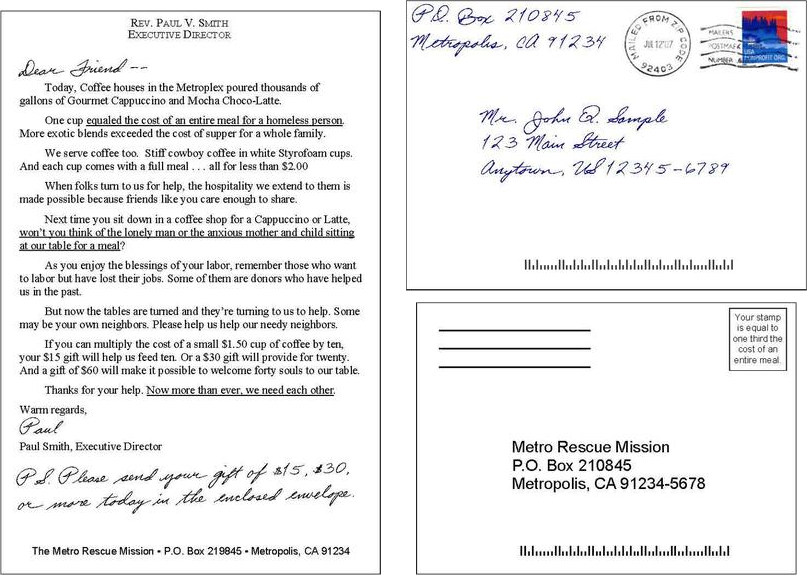 REV. PAUL V. SMITH
EXECUTIVE DIRECTOR
Dear Friend --
Today, Coffee houses in the Metroplex poured thousands of
gallons of Gourmet Cappuccino and Mocha Choco-Latte.
One cup equaled the cost of an entire meal for a homeless person.
More exotic blends exceeded the cost of supper for a whole family.
We serve coffee too. Stiff cowboy coffee in white Styrofoam cups.
And each cup comes with a full meal . . . all for less than $2.00
When folks turn to us for help, the hospitality we extend to them is
made possible because friends like you care enough to share.
Next time you sit down in a coffee shop for a Cappuccino or Latte,
won't you think of the lonely man or the anxious mother and child sitting
at our table for a meal?
As you enjoy the blessings of your labor, remember those who want
to labor but have lost their jobs. Some of them are donors who have helped
us in the past.
But now the tables are turned and they're turning to us to help. Some
may be your own neighbors. Please help us help our needy neighbors.
If you can multiply the cost of a small $1.50 cup of coffee by ten,
your $15 gift will help us feed ten. Or a $30 gift will provide for twenty.
And a gift of $60 will make it possible to welcome forty souls to our table.
Thanks for your help. Now more than ever, we need each other.
Warm regards,
Paul
Paul Smith, Executive Director
P.S. Please send your gift of $15, $30,
or more today in the enclosed envelope.
The Metro Rescue Mission • P.O. Box 219845 • Metropolis, CA 91234
P.O. Box 210845
Metropolis, CA 91234
MAILED FROM ZIP CODE
JUL 12'07
92403
MAILERS
POSTMARK
NUMBER
USA
NONPROFIT ORG.
Mr. John Q. Sample
123 Main Street
Anytown, US 12345-6789
Your stamp
is equal to
one third the
cost of an
entire meal.
Metro Rescue Mission
P.O. Box 210845
Metropolis, CA 91234-5678